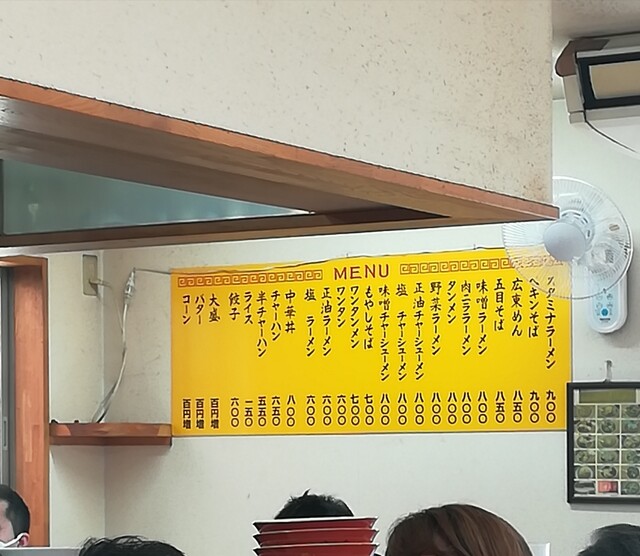 MENU
スタミナラーメン 九〇〇
ペキンそば 九〇〇
広東めん 八五〇
五目そば 八五〇
味噌ラーメン 八〇〇
肉ニララーメン 八〇〇
タンメン 八〇〇
野菜ラーメン 八〇〇
正油チャーシューメン 八〇〇
塩 チャーシューメン 八〇〇
味噌チャーシューメン 八〇〇
もやしそば 七〇〇
ワンタンメン 七〇〇
ワンタン 六〇〇
正油ラーメン 六〇〇
塩 ラーメン 六〇〇
中華丼 八〇〇
チャーハン 六五〇
半チャーハン 五五〇
ライス 一五〇
餃子 六〇〇
大盛 百円増
バター 百円増
コーン 百円増